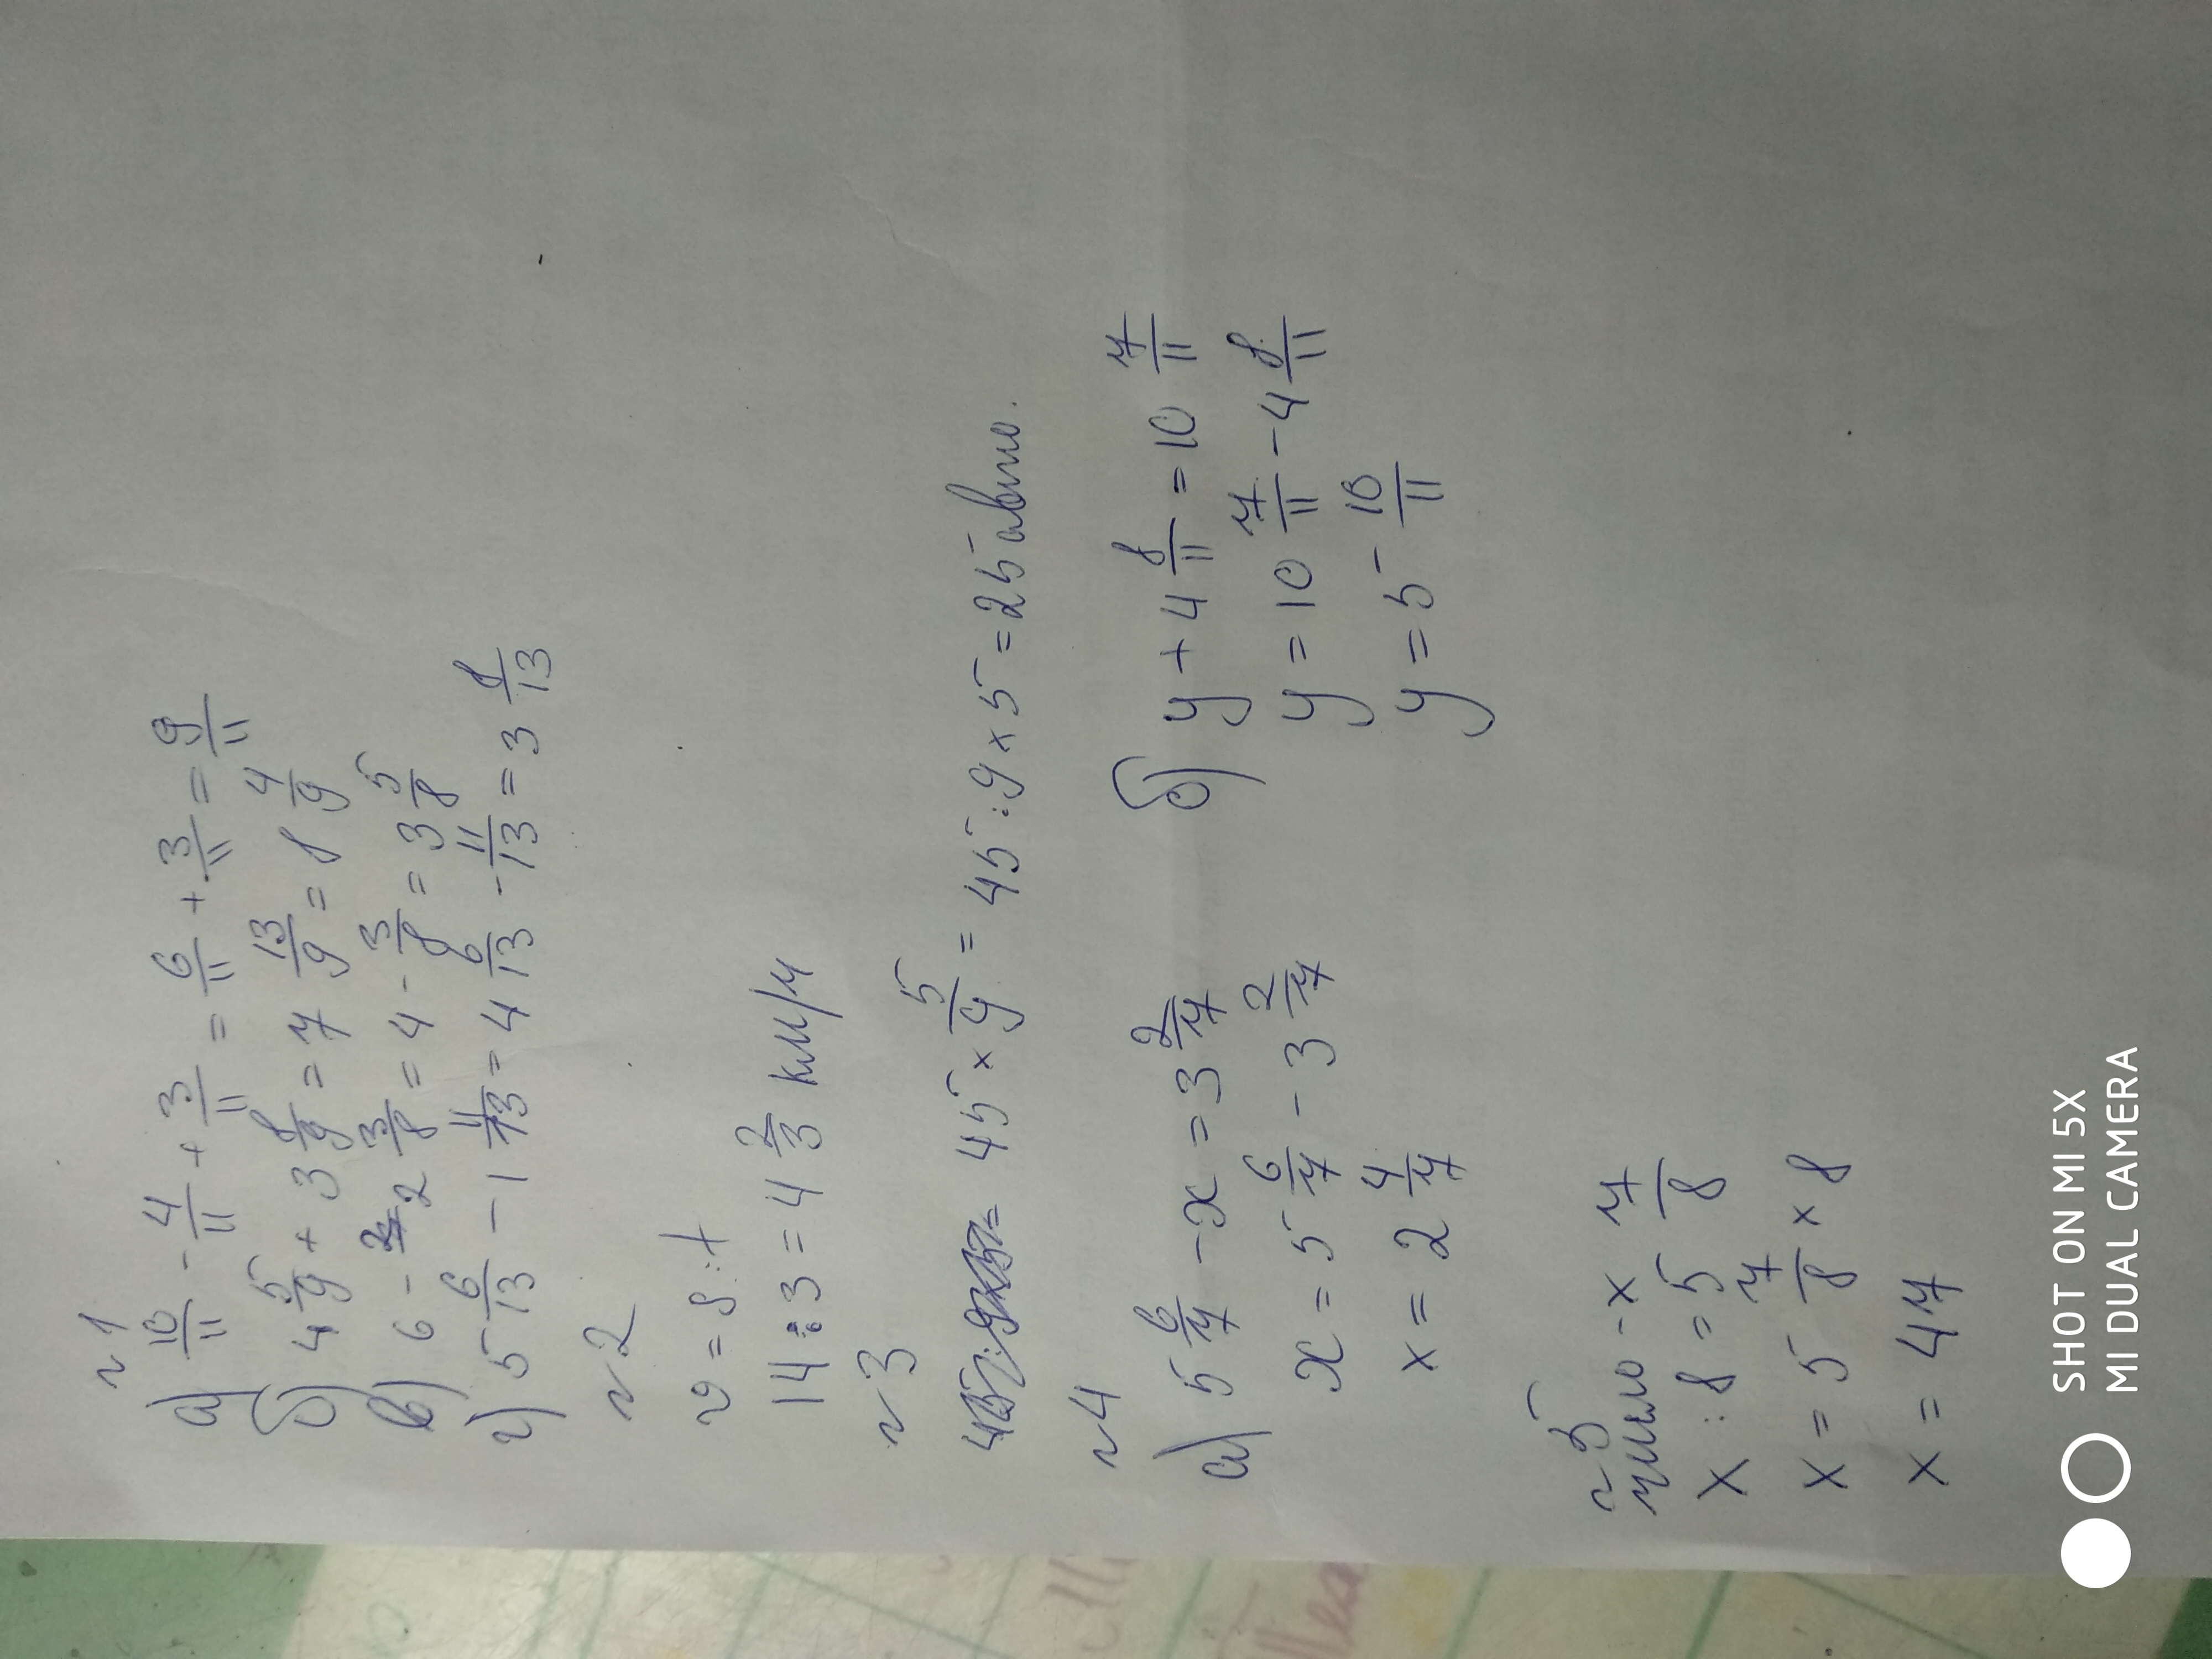 №1
а) 10/11 - 4/11 + 3/11 = 6/11 + 3/11 = 9/11
б) 4 5/9 + 3 8/9 = 7 13/9 = 8 4/9
в) 6 - 2 3/8 = 4 - 3/8 = 3 5/8
г) 5 6/13 - 1 11/13 = 4 6/13 - 11/13 = 3 8/13
№2
v = S : t
14 : 3 = 4 2/3 км/ч
№3
45 × 5/9 = 45 : 9 × 5 = 25 авто.
№4
а) 5 6/7 - x = 3 2/7
x = 5 6/7 - 3 2/7
x = 2 4/7
б) y + 4 8/11 = 10 7/11
y = 10 7/11 - 4 8/11
y = 5 10/11
№5
число - x
x : 8 = 5 7/8
x = 5 7/8 × 8
x = 47
SHOT ON MI 5X
MI DUAL CAMERA